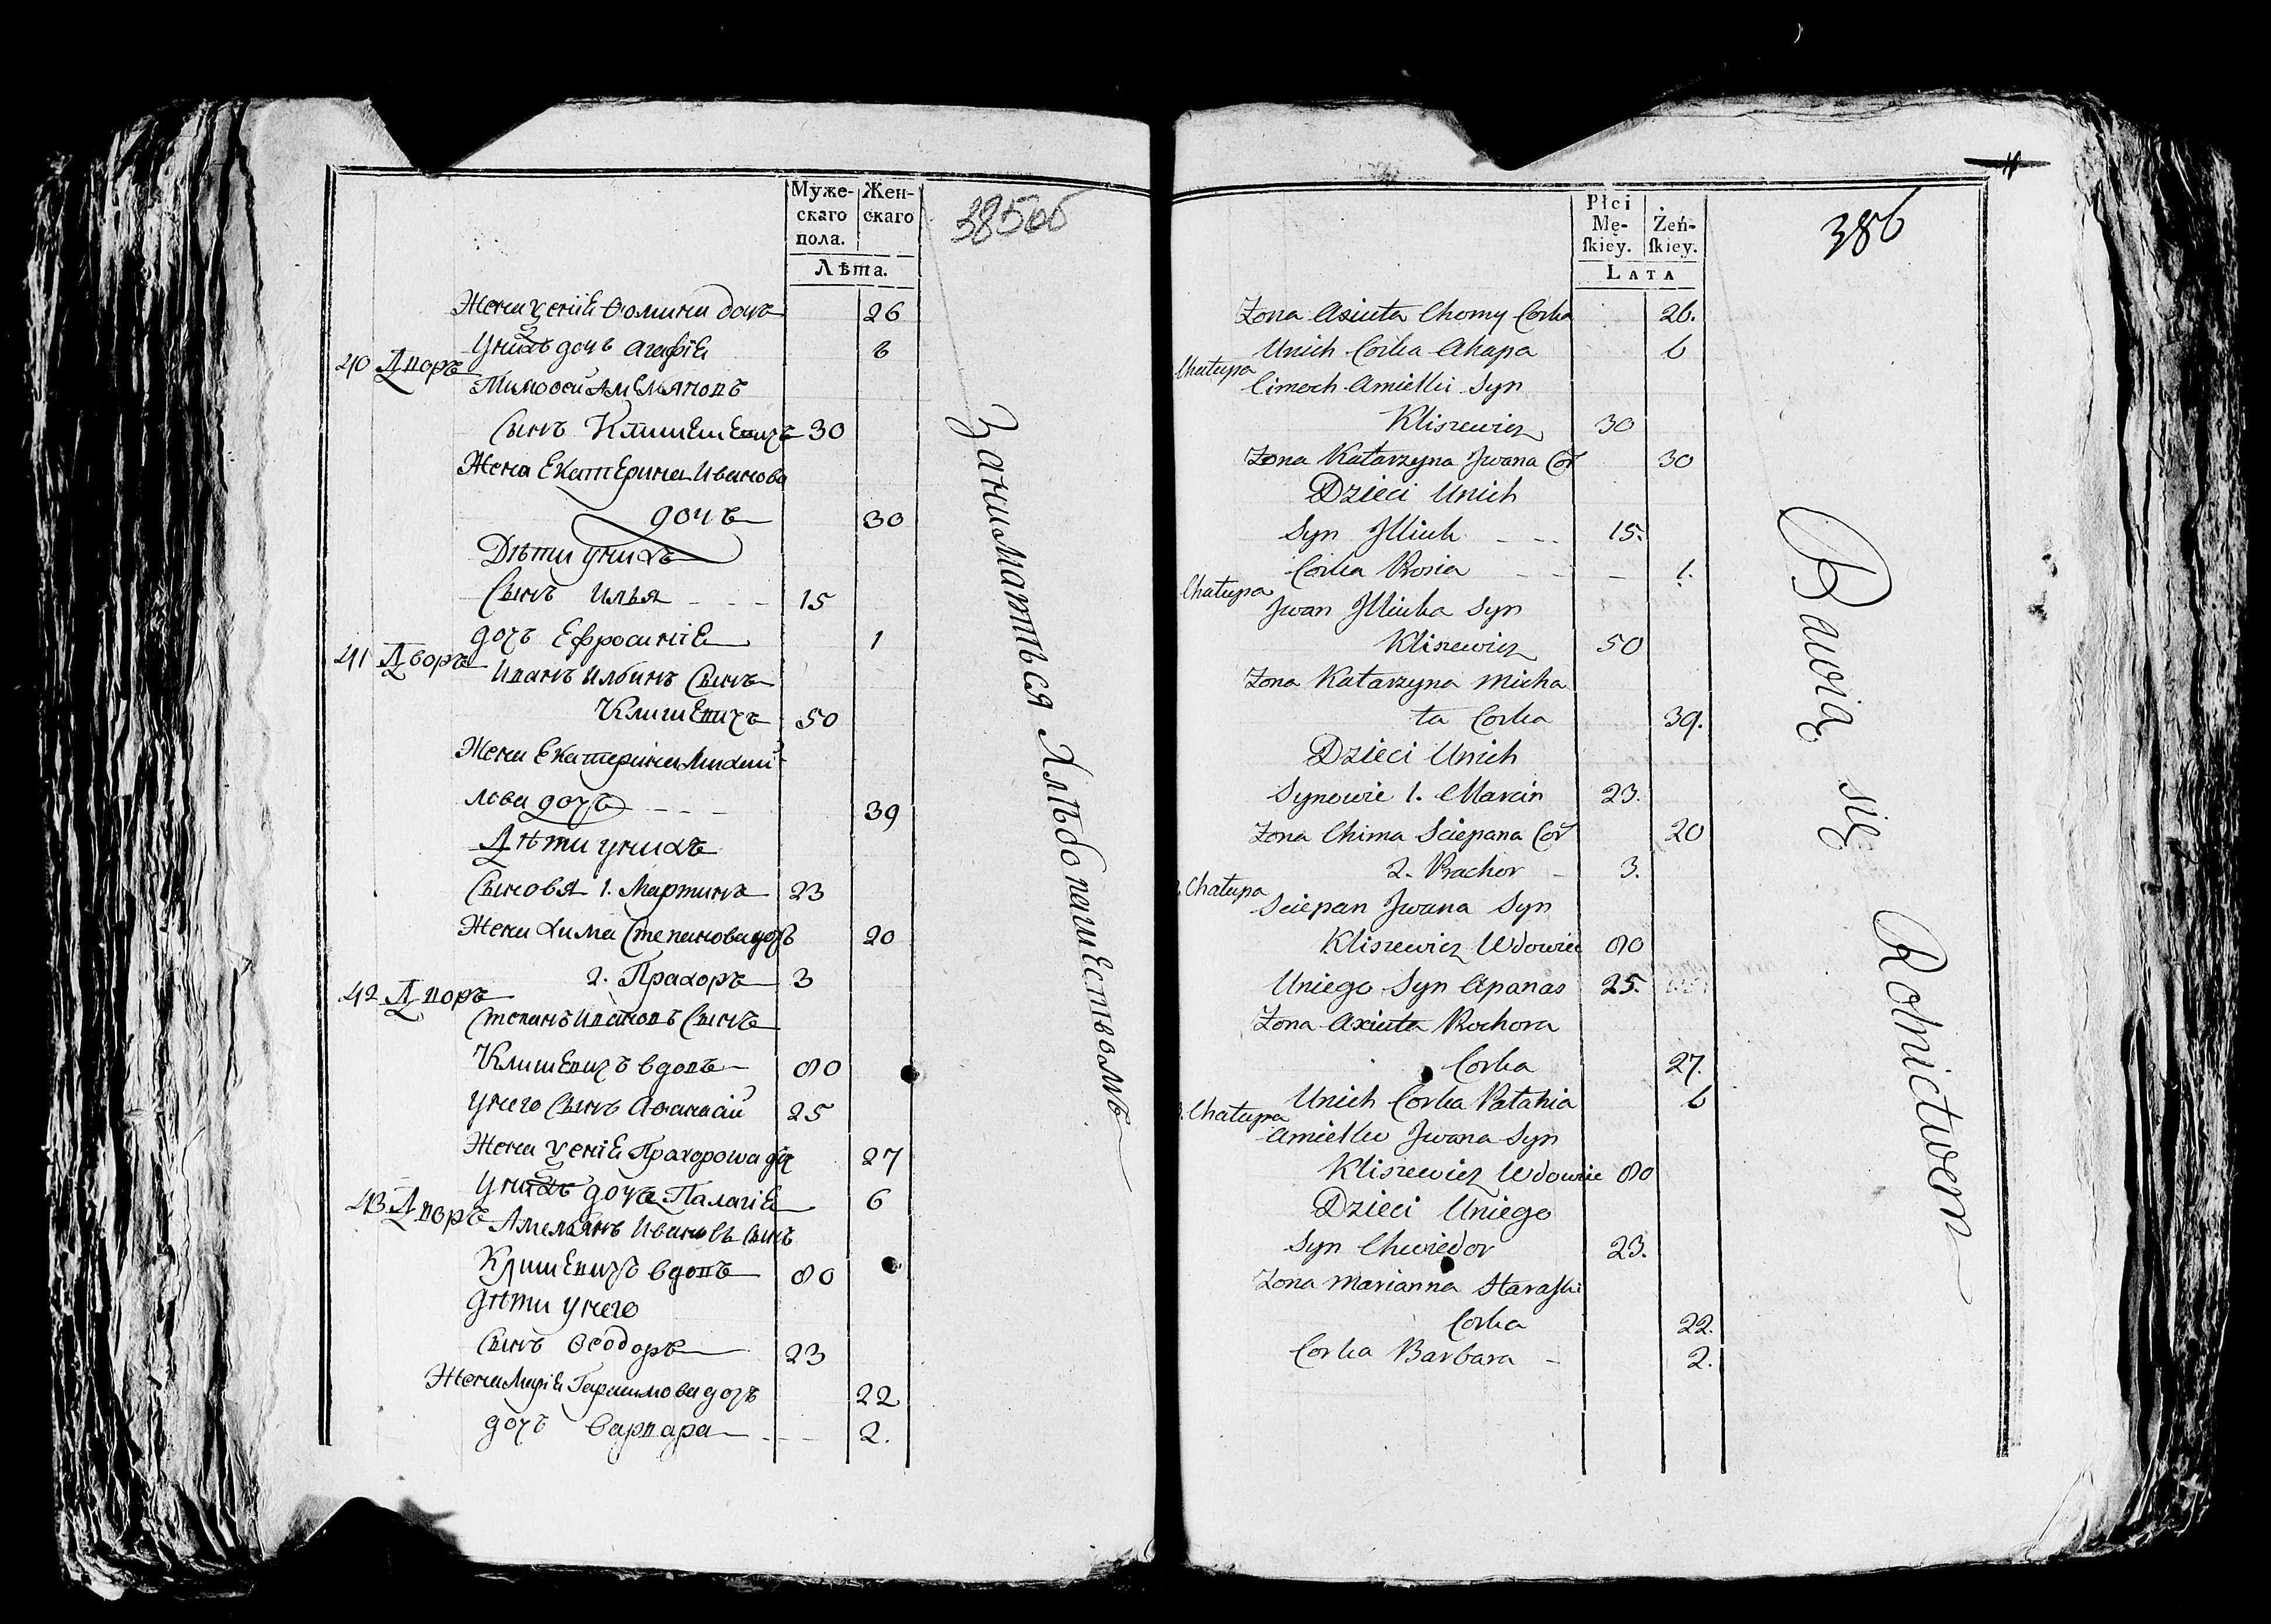 Муже-
скаго
пола.
Жен-
скаго
Лѣта.
385об
Жена Ксенiя Ѳомина дочь 26
Унихъ дочь Агафiя 6
40 Дворъ
Тимофей Амельяновъ
Сынъ Клишевичъ 30
Жена Екатерина Иванова
дочь 30
Дѣти унихъ
Сынъ Илья 15
дочь Ефросинiя 1
41 Дворъ
Иванъ Ильинъ Сынъ
Клишевичъ 50
Жена Екатерина Михай
лова дочь 39
Дѣти унихъ
Сыновья 1. Мартинъ 23
Жена Хима Степанова дочь 20
2. Прахоръ 3
42 Дворъ
Степанъ Ивановъ Сынъ
Клишевичъ вдовъ 80
Унего Сынъ Афанасiй 25
Жена Ксенiя Прахорова 27
Унихъ дочь Палагiя 6
43 Дворъ
Амельянъ Ивановъ Сынъ
Клишевичъ вдовъ 80
Дѣти унего
Сынъ Ѳеодоръ 23
Жена Марiя Гарасимова дочь 22
дочь Варвара 2.
Заниматься Хлѣбопашествомъ
Płci
Mę-
ſkiey.
Żeń-
ſkiey.
LATA
386
Zona Axiuta Chomy Corka 26.
Unich Corka Ahapa 6
Chałupa
Cimoch Amielki Syn
Kliszewicz 30
Zona Katarzyna Jwana Cor 30
Dzieci Unich
Syn Jlliuk 15.
Corka Prosia 1.
Chałupa
Jwan Jlliuka Syn
Kliszewicz 50
Zona Katarzyna Micha
ła Corka 39.
Dzieci Unich
Synowie 1. Marcin 23.
Zona Chima Sciepana Cor 20
2. Prachor 3.
Chałupa
Sciepan Jwana Syn
Kliszewicz Wdowiec 80
Uniego Syn Apanas 25.
Zona Axiuta Prochora
Corka 27.
Unich Corka Pałahia 6
Chałupa
Amielko Jwana Syn
Kliszewicz Wdowiec 80
Dzieci Uniego
Syn Chwiedor 23.
Zona Marianna Haraſki
Corka 22.
Corka Barbara 2.
Bawią się Rolnictwem